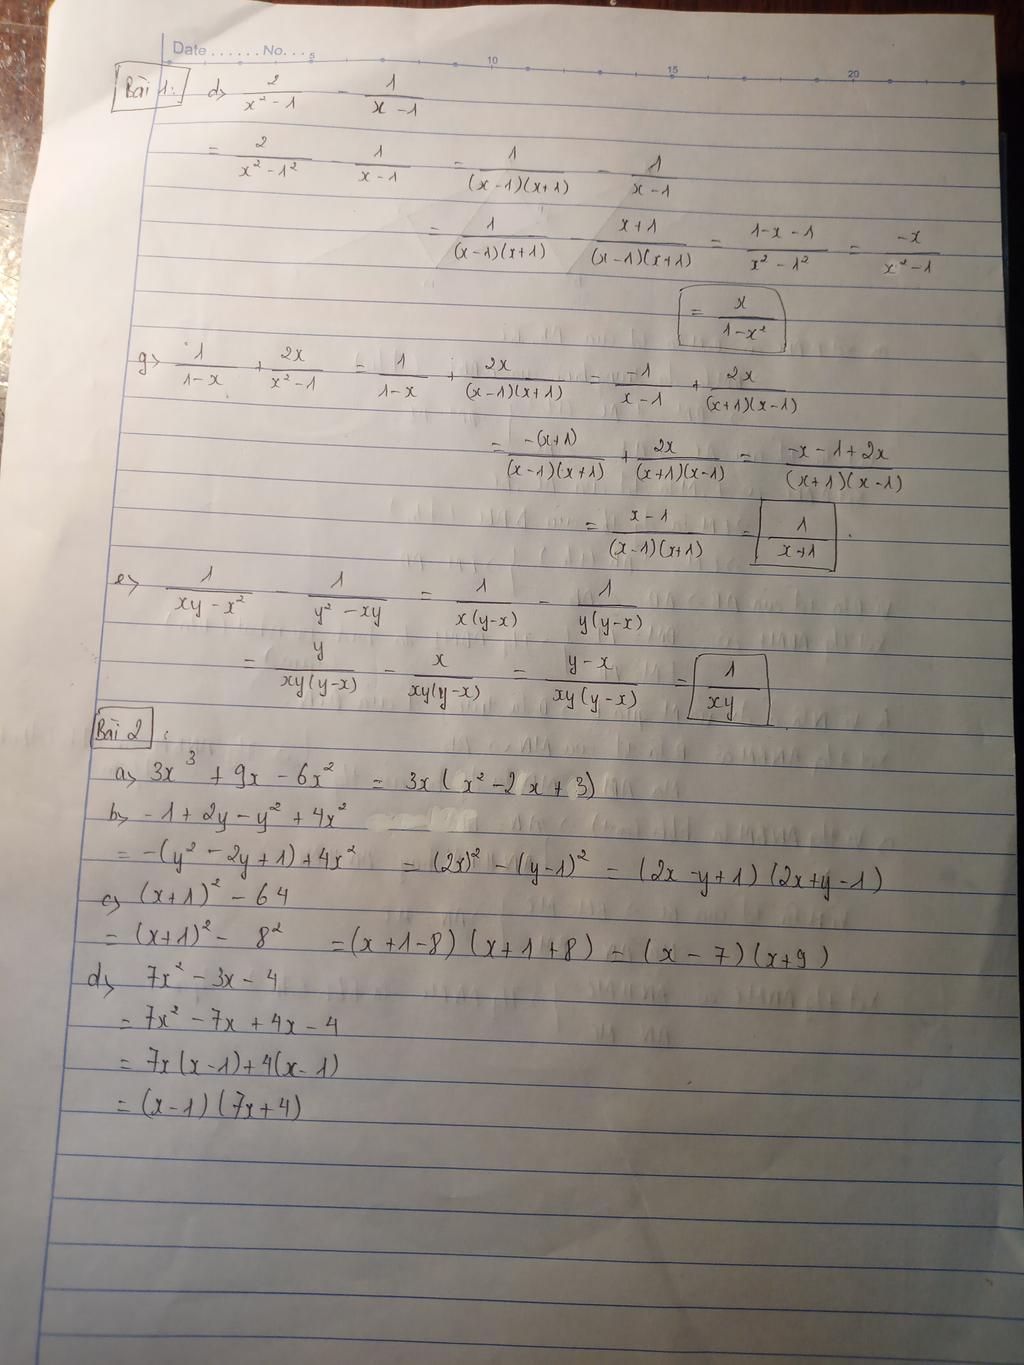 Date ...... No. ... 5 10 15 20
Bài 1: d> 2/(x² - 1) - 1/(x - 1)
= 2/(x² - 1²) - 1/(x - 1) = 1/((x - 1)(x + 1)) - 1/(x - 1)
= 1/((x - 1)(x + 1)) - (x + 1)/((x - 1)(x + 1)) = (1 - x - 1)/(x² - 1²) = -x/(x² - 1)
= x/(1 - x²)
g> 1/(1 - x) + 2x/(x² - 1) = 1/(1 - x) + 2x/((x - 1)(x + 1)) = -1/(x - 1) + 2x/((x + 1)(x - 1))
= -(x + 1)/((x - 1)(x + 1)) + 2x/((x + 1)(x - 1)) = (-x - 1 + 2x)/((x + 1)(x - 1))
= (x - 1)/((x - 1)(x + 1)) = 1/(x + 1).
e> 1/(xy - x²) - 1/(y² - xy) = 1/(x(y - x)) - 1/(y(y - x))
= y/(xy(y - x)) - x/(xy(y - x)) = (y - x)/(xy(y - x)) = 1/(xy)
Bài 2 :
a> 3x³ + 9x - 6x² = 3x(x² - 2x + 3)
b> -1 + 2y - y² + 4x²
= -(y² - 2y + 1) + 4x² = (2x)² - (y - 1)² = (2x - y + 1)(2x + y - 1)
c> (x + 1)² - 64
= (x + 1)² - 8² = (x + 1 - 8)(x + 1 + 8) = (x - 7)(x + 9)
d> 7x² - 3x - 4
= 7x² - 7x + 4x - 4
= 7x(x - 1) + 4(x - 1)
= (x - 1)(7x + 4)